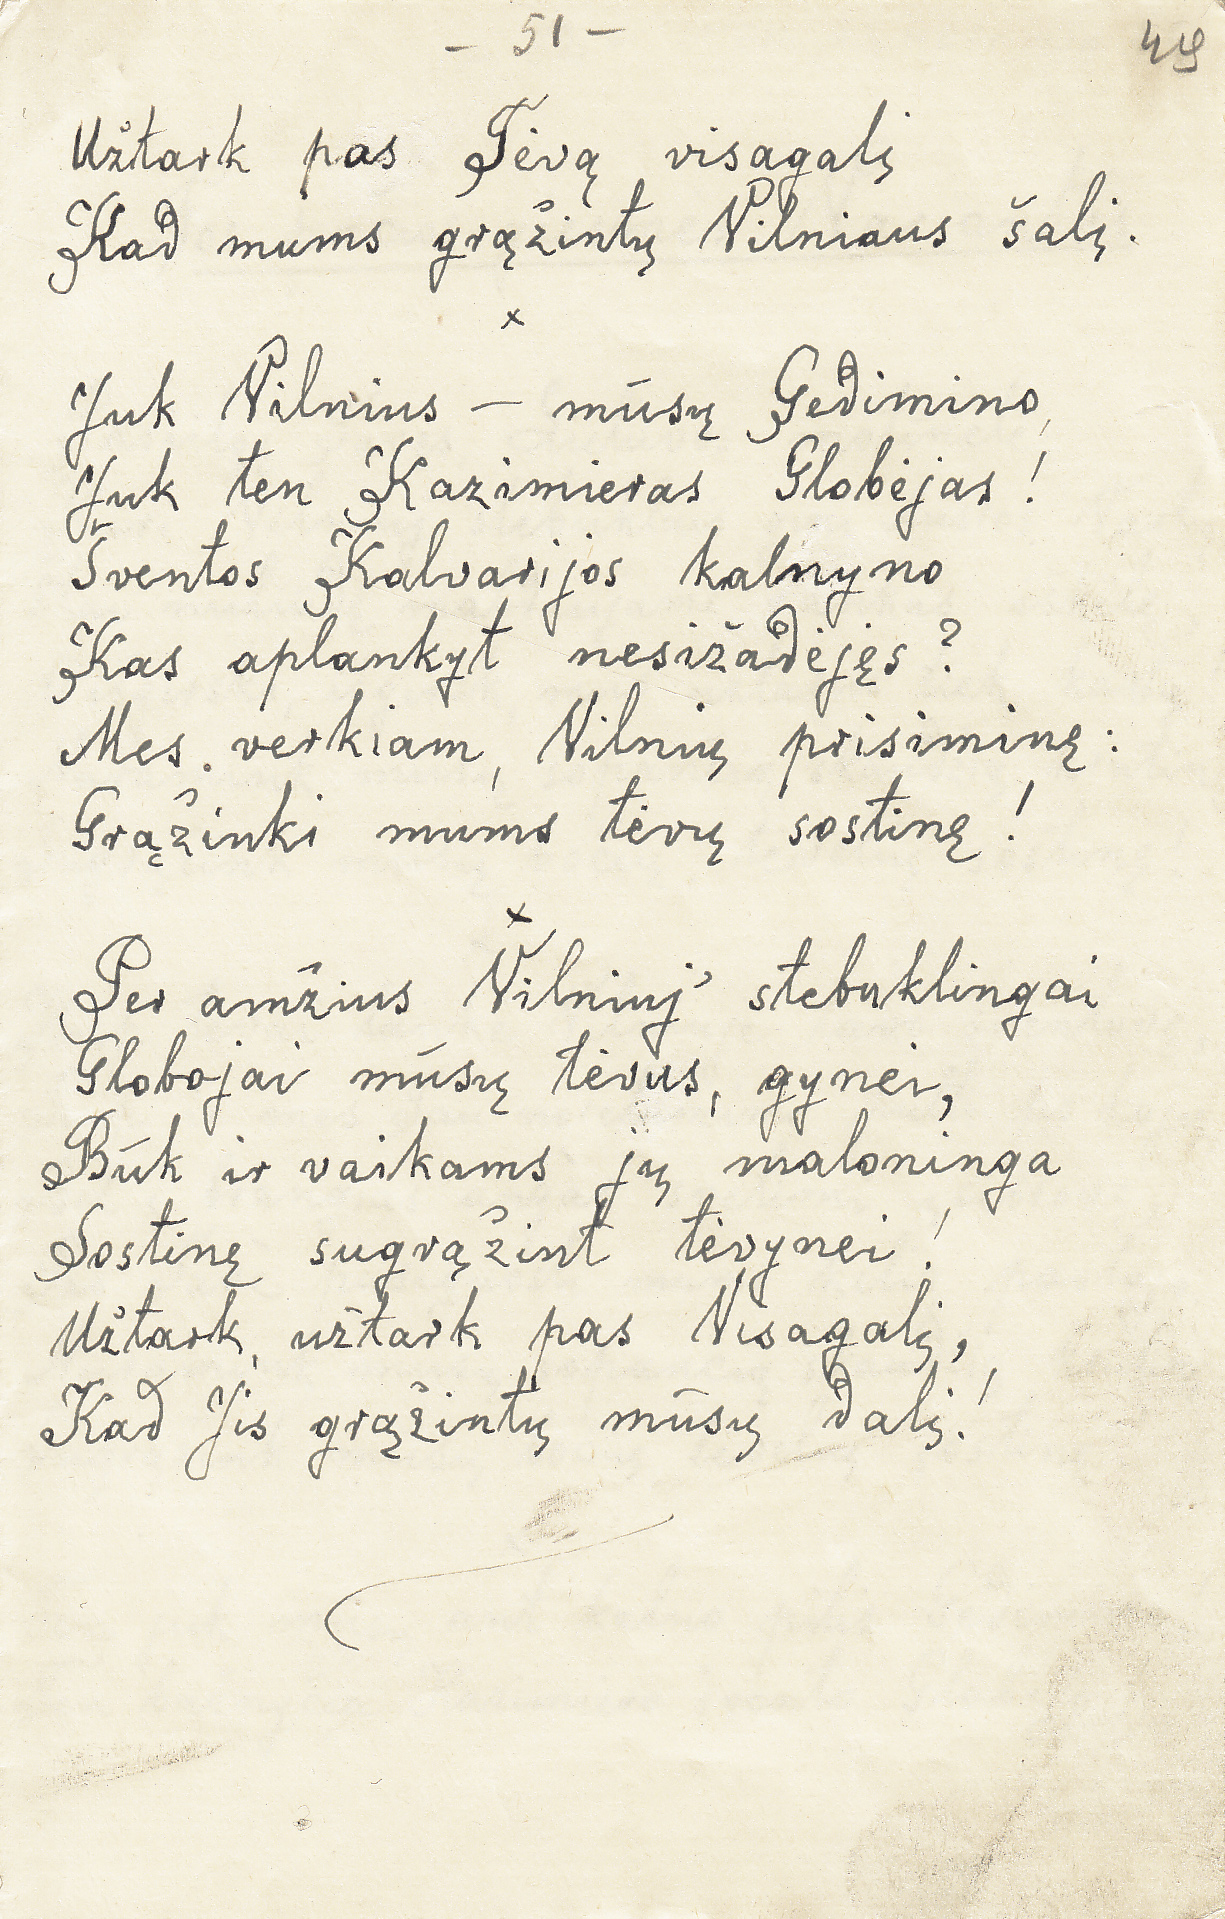 - 51 -
49
Užtark pas Tėvą visagalį
Kad mums grąžintų Vilniaus šalį.
x
Juk Vilnius – mūsų Gedimino,
Juk ten Kazimieras Globėjas!
Šventos Kalvarijos kalnyno
Kas aplankyt nesižadėjęs?
Mes verkiam, Vilnių prisiminę:
Grąžinki mums tėvų sostinę!
x
Per amžius Vilniuj' stebuklingai
Globojai mūsų tėvus, gynei,
Būk ir vaikams jų maloninga
Sostinę sugrąžint tėvynei!
Užtark, užtark pas Visagalį,
Kad Jis grąžintų mūsų dalį!